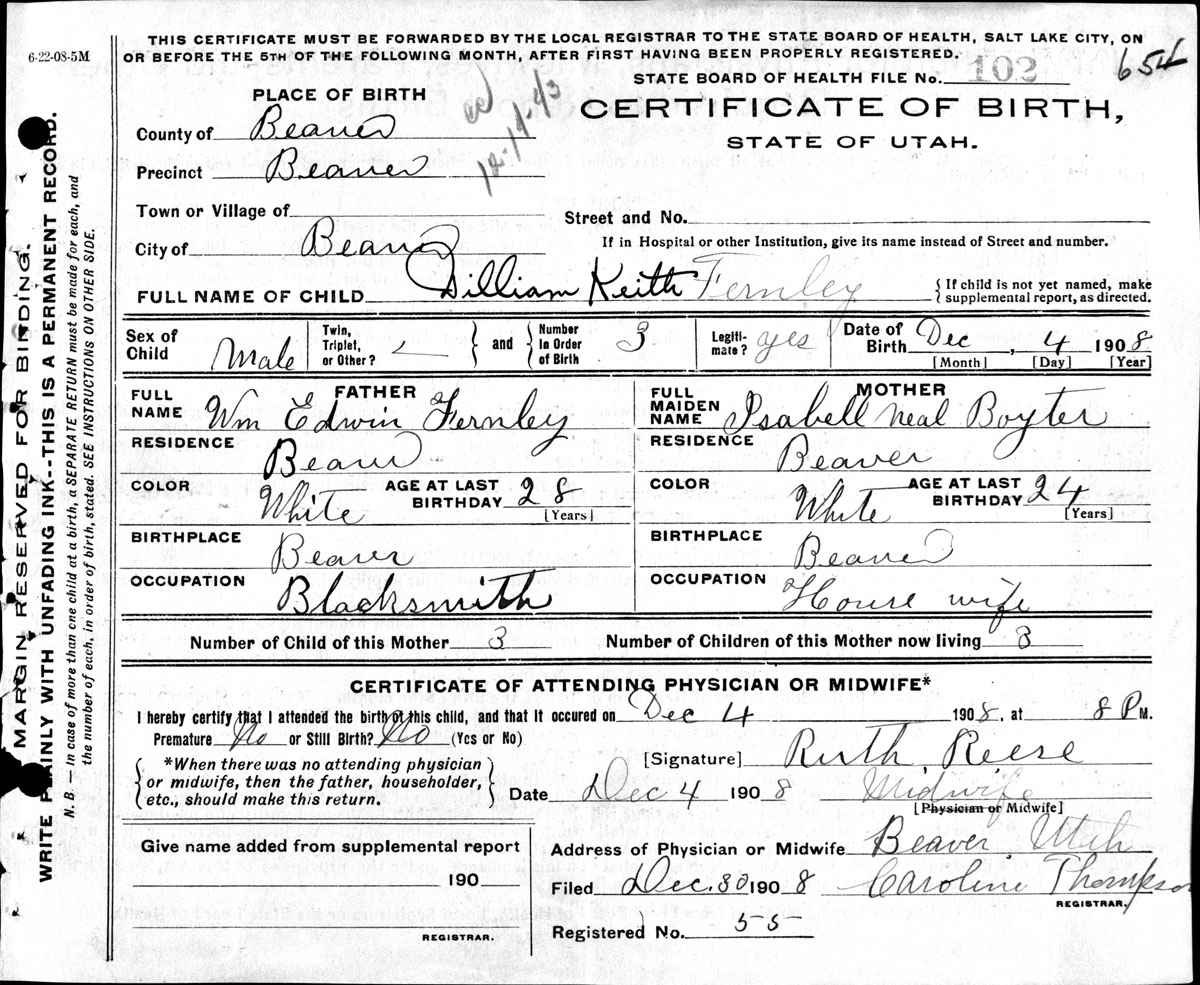 6-22-08-5M
THIS CERTIFICATE MUST BE FORWARDED BY THE LOCAL REGISTRAR TO THE STATE BOARD OF HEALTH, SALT LAKE CITY, ON
OR BEFORE THE 5TH OF THE FOLLOWING MONTH, AFTER FIRST HAVING BEEN PROPERLY REGISTERED.
654
STATE BOARD OF HEALTH FILE No. 102
PLACE OF BIRTH
12-14-43
CERTIFICATE OF BIRTH,
STATE OF UTAH.
County of Beaver
Precinct Beaver
Town or Village of
Street and No.
City of Beaver
If in Hospital or other Institution, give its name instead of Street and number.
FULL NAME OF CHILD William Keith Fernley
{ If child is not yet named, make
supplemental report, as directed.
Sex of Child Male
Twin, Triplet, or Other?
and
Number in Order of Birth 3
Legiti-mate? yes
Date of Birth Dec, 4 1908
[Month] [Day] [Year]
FATHER
FULL NAME Wm Edwin Fernley
RESIDENCE Beaver
COLOR White
AGE AT LAST BIRTHDAY 28
[Years]
BIRTHPLACE Beaver
OCCUPATION Blacksmith
MOTHER
FULL MAIDEN NAME Isabell Neal Boyter
RESIDENCE Beaver
COLOR White
AGE AT LAST BIRTHDAY 24
[Years]
BIRTHPLACE Beaver
OCCUPATION House wife
Number of Child of this Mother 3
Number of Children of this Mother now living 3
CERTIFICATE OF ATTENDING PHYSICIAN OR MIDWIFE*
I hereby certify that I attended the birth of this child, and that it occured on Dec 4 1908, at 8 P M.
Premature No or Still Birth? No (Yes or No)
[Signature] Ruth Reese
{ *When there was no attending physician
or midwife, then the father, householder,
etc., should make this return. }
Date Dec 4 1908
Midwife
[Physician or Midwife]
Give name added from supplemental report
190
REGISTRAR.
Address of Physician or Midwife Beaver, Utah
Filed Dec. 30 1908 Caroline Thompson
REGISTRAR.
Registered No. 55
MARGIN RESERVED FOR BINDING.
WRITE PLAINLY WITH UNFADING INK--THIS IS A PERMANENT RECORD.
N. B. — In case of more than one child at a birth, a SEPARATE RETURN must be made for each, and
the number of each, in order of birth, stated. SEE INSTRUCTIONS ON OTHER SIDE.